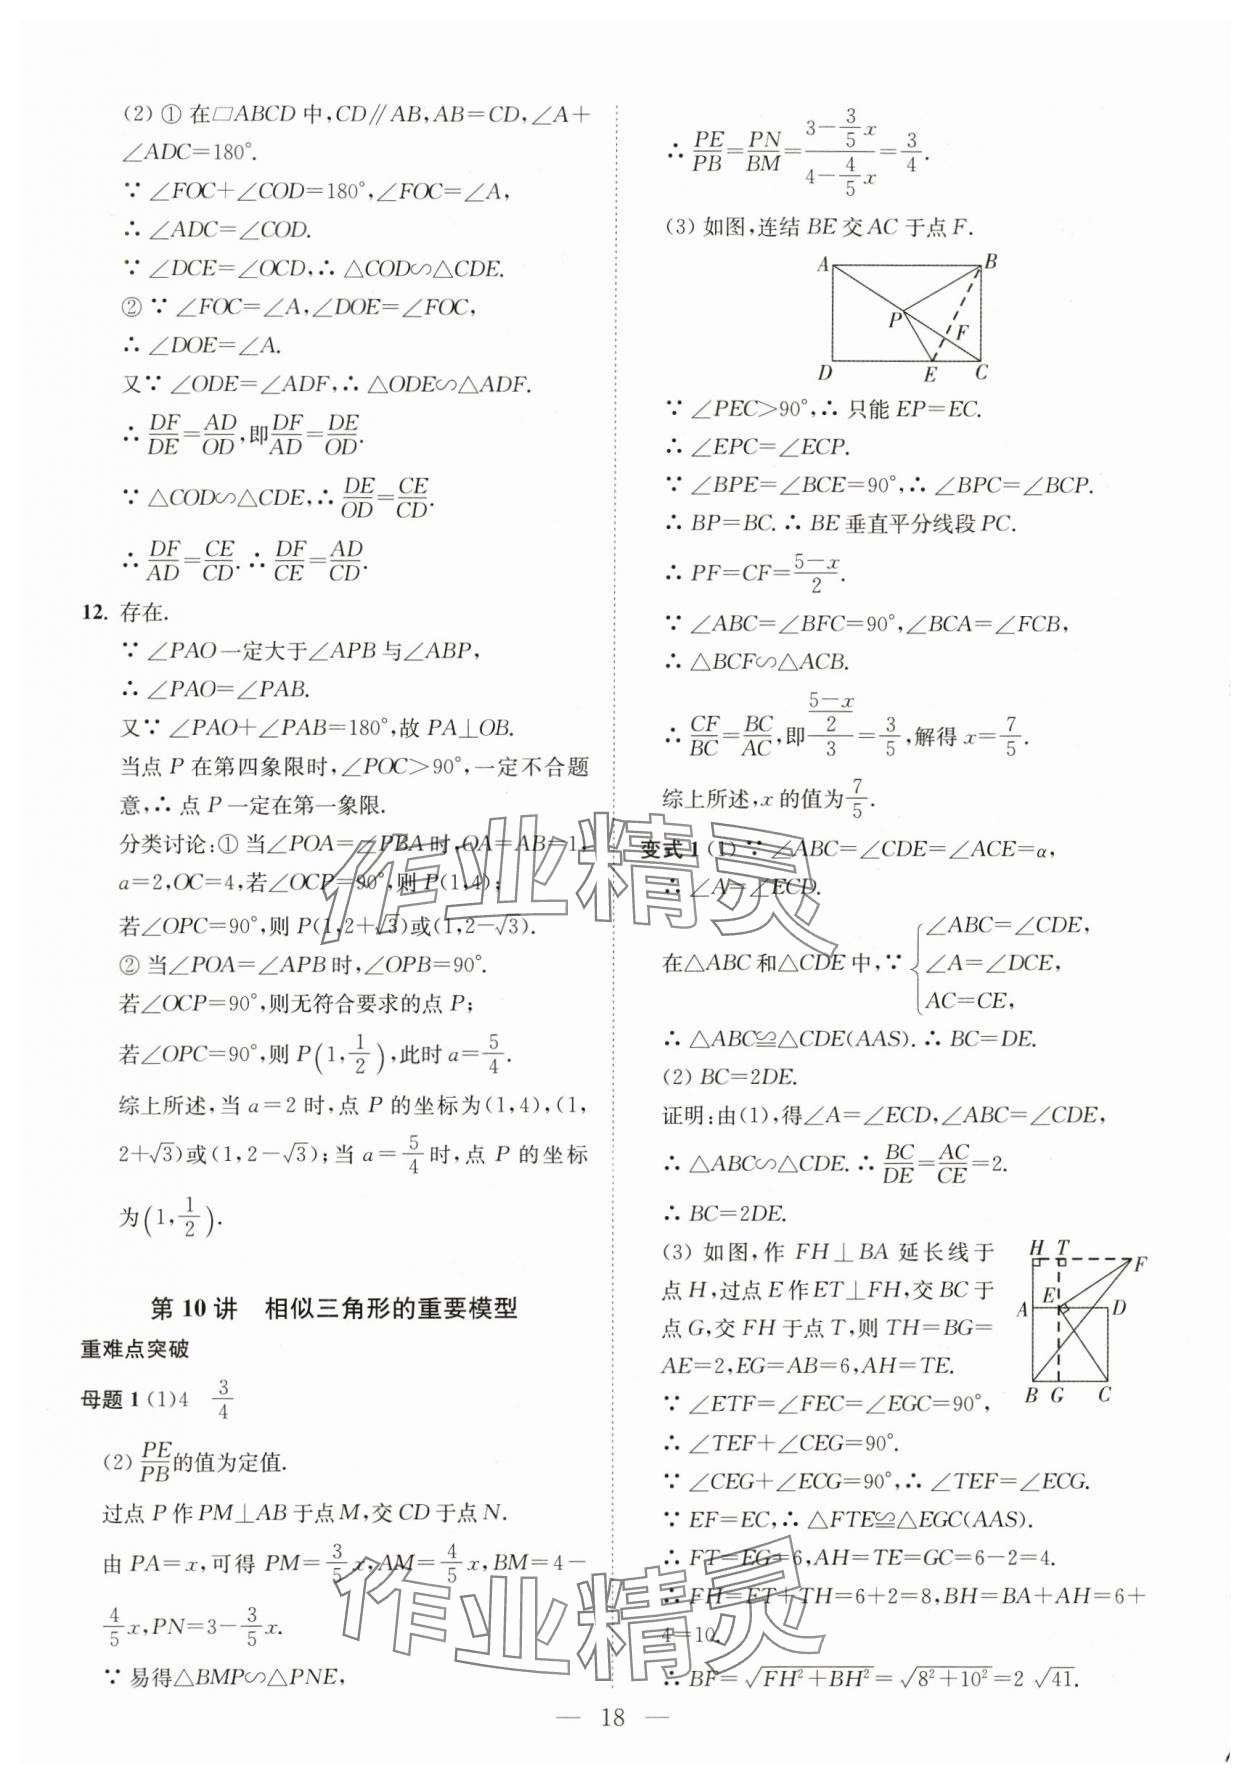 (2) ① 在□ABCD 中,CD∥AB,AB=CD,∠A+
∠ADC=180°.
∵ ∠FOC+∠COD=180°,∠FOC=∠A,
∴ ∠ADC=∠COD.
∵ ∠DCE=∠OCD,∴ △COD∽△CDE.
② ∵ ∠FOC=∠A,∠DOE=∠FOC,
∴ ∠DOE=∠A.
又∵ ∠ODE=∠ADF,∴ △ODE∽△ADF.
∴ DF/DE=AD/OD,即DF/AD=DE/OD.
∵ △COD∽△CDE,∴ DE/OD=CE/CD.
∴ DF/AD=CE/CD. ∴ DF/CE=AD/CD.
12. 存在.
∵ ∠PAO 一定大于∠APB 与∠ABP,
∴ ∠PAO=∠PAB.
又∵ ∠PAO+∠PAB=180°,故 PA⊥OB.
当点 P 在第四象限时,∠POC>90°,一定不合题
意,∴ 点 P 一定在第一象限.
分类讨论:① 当∠POA=∠PBA 时,OA=AB=1,
a=2,OC=4,若∠OCP=90°,则 P(1,4);
若∠OPC=90°,则 P(1,2+√3)或(1,2-√3).
② 当∠POA=∠APB 时,∠OPB=90°.
若∠OCP=90°,则无符合要求的点 P;
若∠OPC=90°,则 P(1,1/2),此时 a=5/4.
综上所述,当 a=2 时,点 P 的坐标为(1,4),(1,
2+√3)或(1,2-√3);当 a=5/4 时,点 P 的坐标
为(1,1/2).
第 10 讲 相似三角形的重要模型
重难点突破
母题 1 (1)4 3/4
(2) PE/PB的值为定值.
过点 P 作 PM⊥AB 于点 M,交 CD 于点 N.
由 PA=x,可得 PM=3/5x,AM=4/5x,BM=4-
4/5x,PN=3-3/5x.
∵ 易得△BMP∽△PNE,
∴ PE/PB=PN/BM=(3-3/5x)/(4-4/5x)=3/4.
(3) 如图,连结 BE 交 AC 于点 F.
A B
P F
D E C
∵ ∠PEC>90°,∴ 只能 EP=EC.
∴ ∠EPC=∠ECP.
∵ ∠BPE=∠BCE=90°,∴ ∠BPC=∠BCP.
∴ BP=BC. ∴ BE 垂直平分线段 PC.
∴ PF=CF=(5-x)/2.
∵ ∠ABC=∠BFC=90°,∠BCA=∠FCB,
∴ △BCF∽△ACB.
∴ CF/BC=BC/AC,即((5-x)/2)/3=3/5,解得 x=7/5.
综上所述,x 的值为7/5.
变式 1 (1) ∵ ∠ABC=∠CDE=∠ACE=α,
∴ ∠A=∠ECD.
在△ABC 和△CDE 中,∵ {∠ABC=∠CDE,
∠A=∠DCE,
AC=CE,
∴ △ABC≌△CDE(AAS). ∴ BC=DE.
(2) BC=2DE.
证明:由(1),得∠A=∠ECD,∠ABC=∠CDE,
∴ △ABC∽△CDE. ∴ BC/DE=AC/CE=2.
∴ BC=2DE.
(3) 如图,作 FH⊥BA 延长线于
点 H,过点 E 作 ET⊥FH,交 BC 于
点 G,交 FH 于点 T,则 TH=BG=
AE=2,EG=AB=6,AH=TE.
H T F
A E D
B G C
∵ ∠ETF=∠FEC=∠EGC=90°,
∴ ∠TEF+∠CEG=90°.
∵ ∠CEG+∠ECG=90°,∴ ∠TEF=∠ECG.
∵ EF=EC,∴ △FTE≌△EGC(AAS).
∴ FT=EG=6,AH=TE=GC=6-2=4.
∴ FH=FT+TH=6+2=8,BH=BA+AH=6+
4=10.
∴ BF=√(FH²+BH²)=√(8²+10²)=2√41.
— 18 —
作业精灵
作业精灵